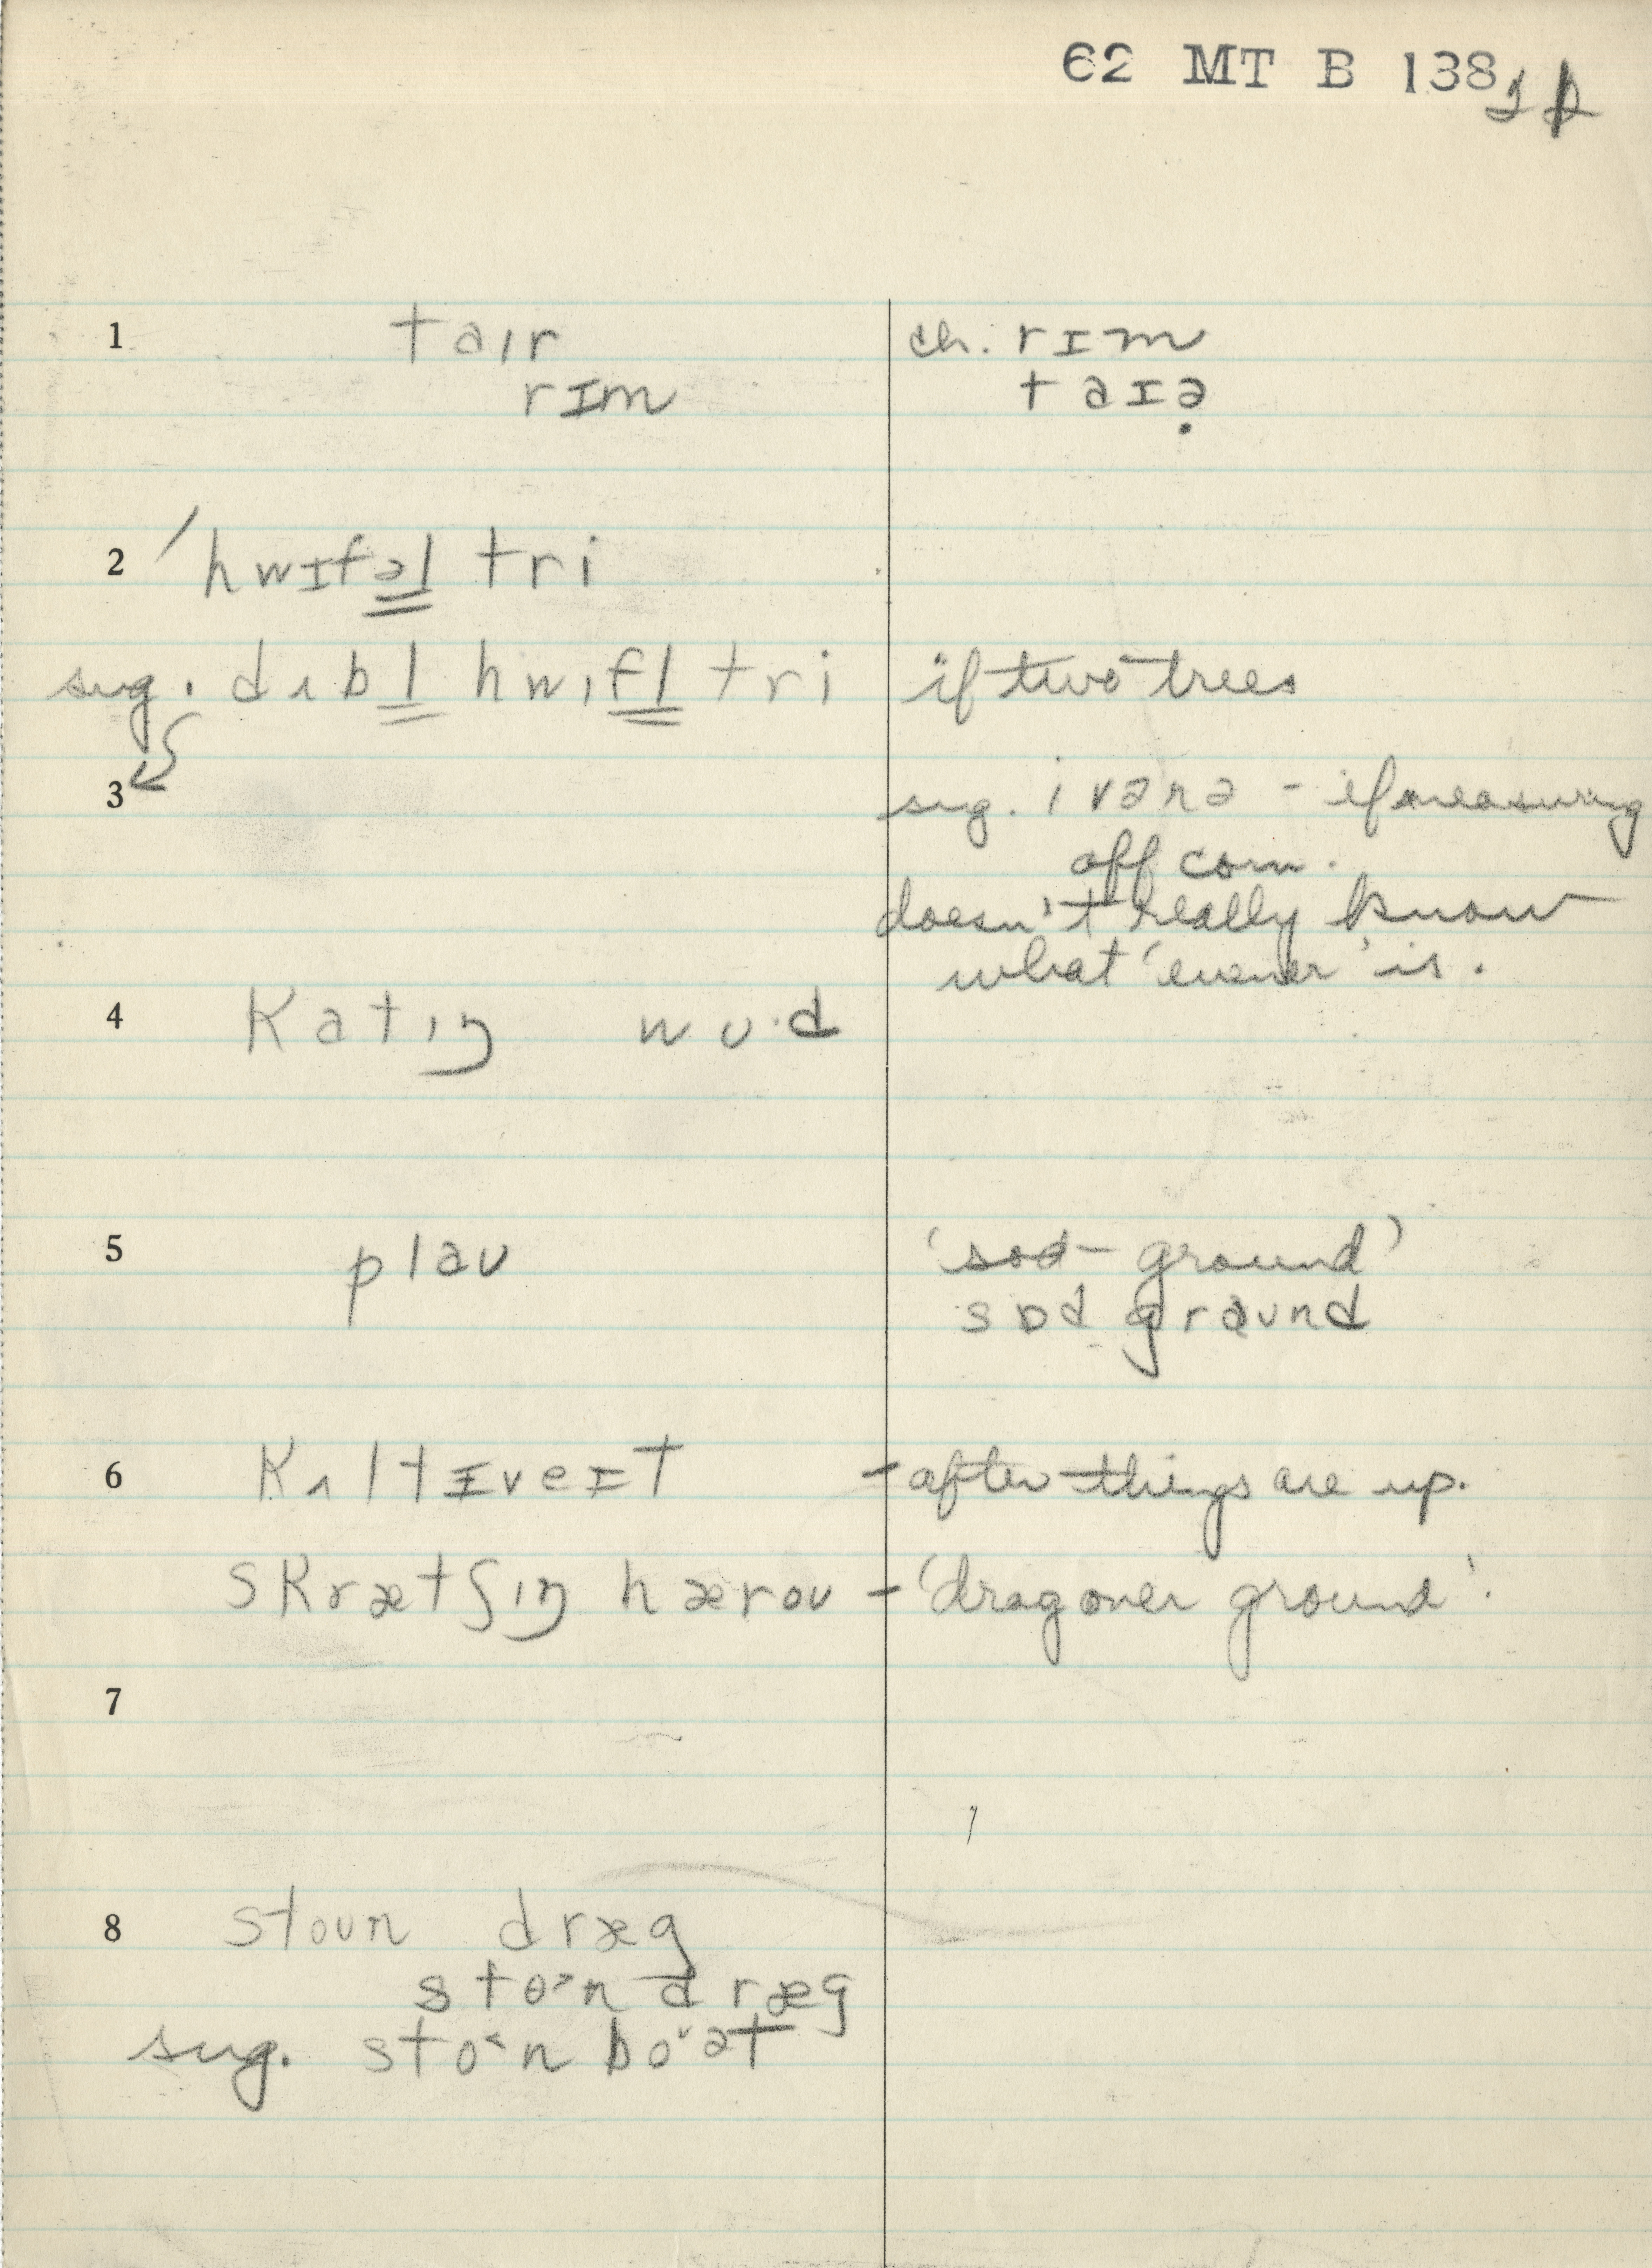 62 MT B 138
1 taɪr ch. rɪm
rɪm taɪə̣
2 hwɪfəl tri
sug. dʌbl hwɪfl tri if two trees
3 sug. ivənə - if measuring
off corn.
doesn't really know
what 'evener' is.
4 Katɪŋ wʊ·d
5 plaʊ 'sod-ground'
sɒd graʊnd
6 Kʌltɪveɪt - after things are up.
sKrætʃɪŋ hæroʊ - 'drag over ground'.
7
8 stoʊn dræg
sto˃n dræg
sug. sto˂n bo˅ət